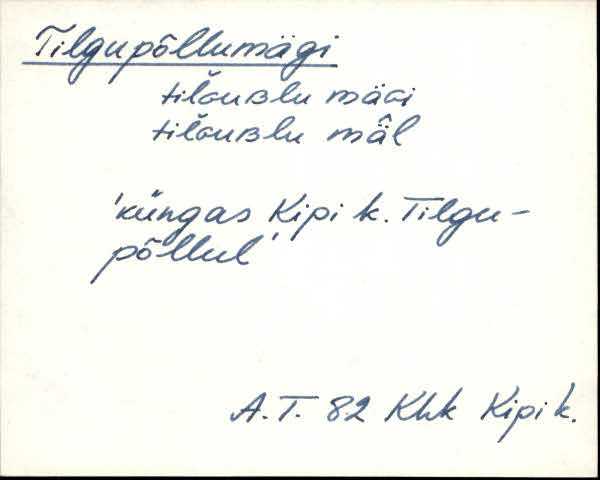 Tilgupõllumägi
tiĺɢuʙlu mäɢi
tiĺɢuʙlu mä̂l
'küngas Kipi k. Tilgu-
põllul'
A.T. 82 Khk Kipi k.